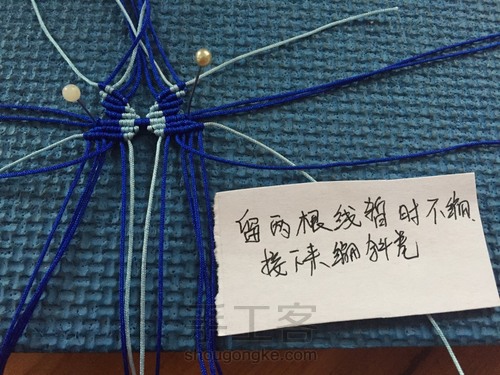 留两根线暂时不绷、
接下来绷斜壳
手工客
shougongke.com